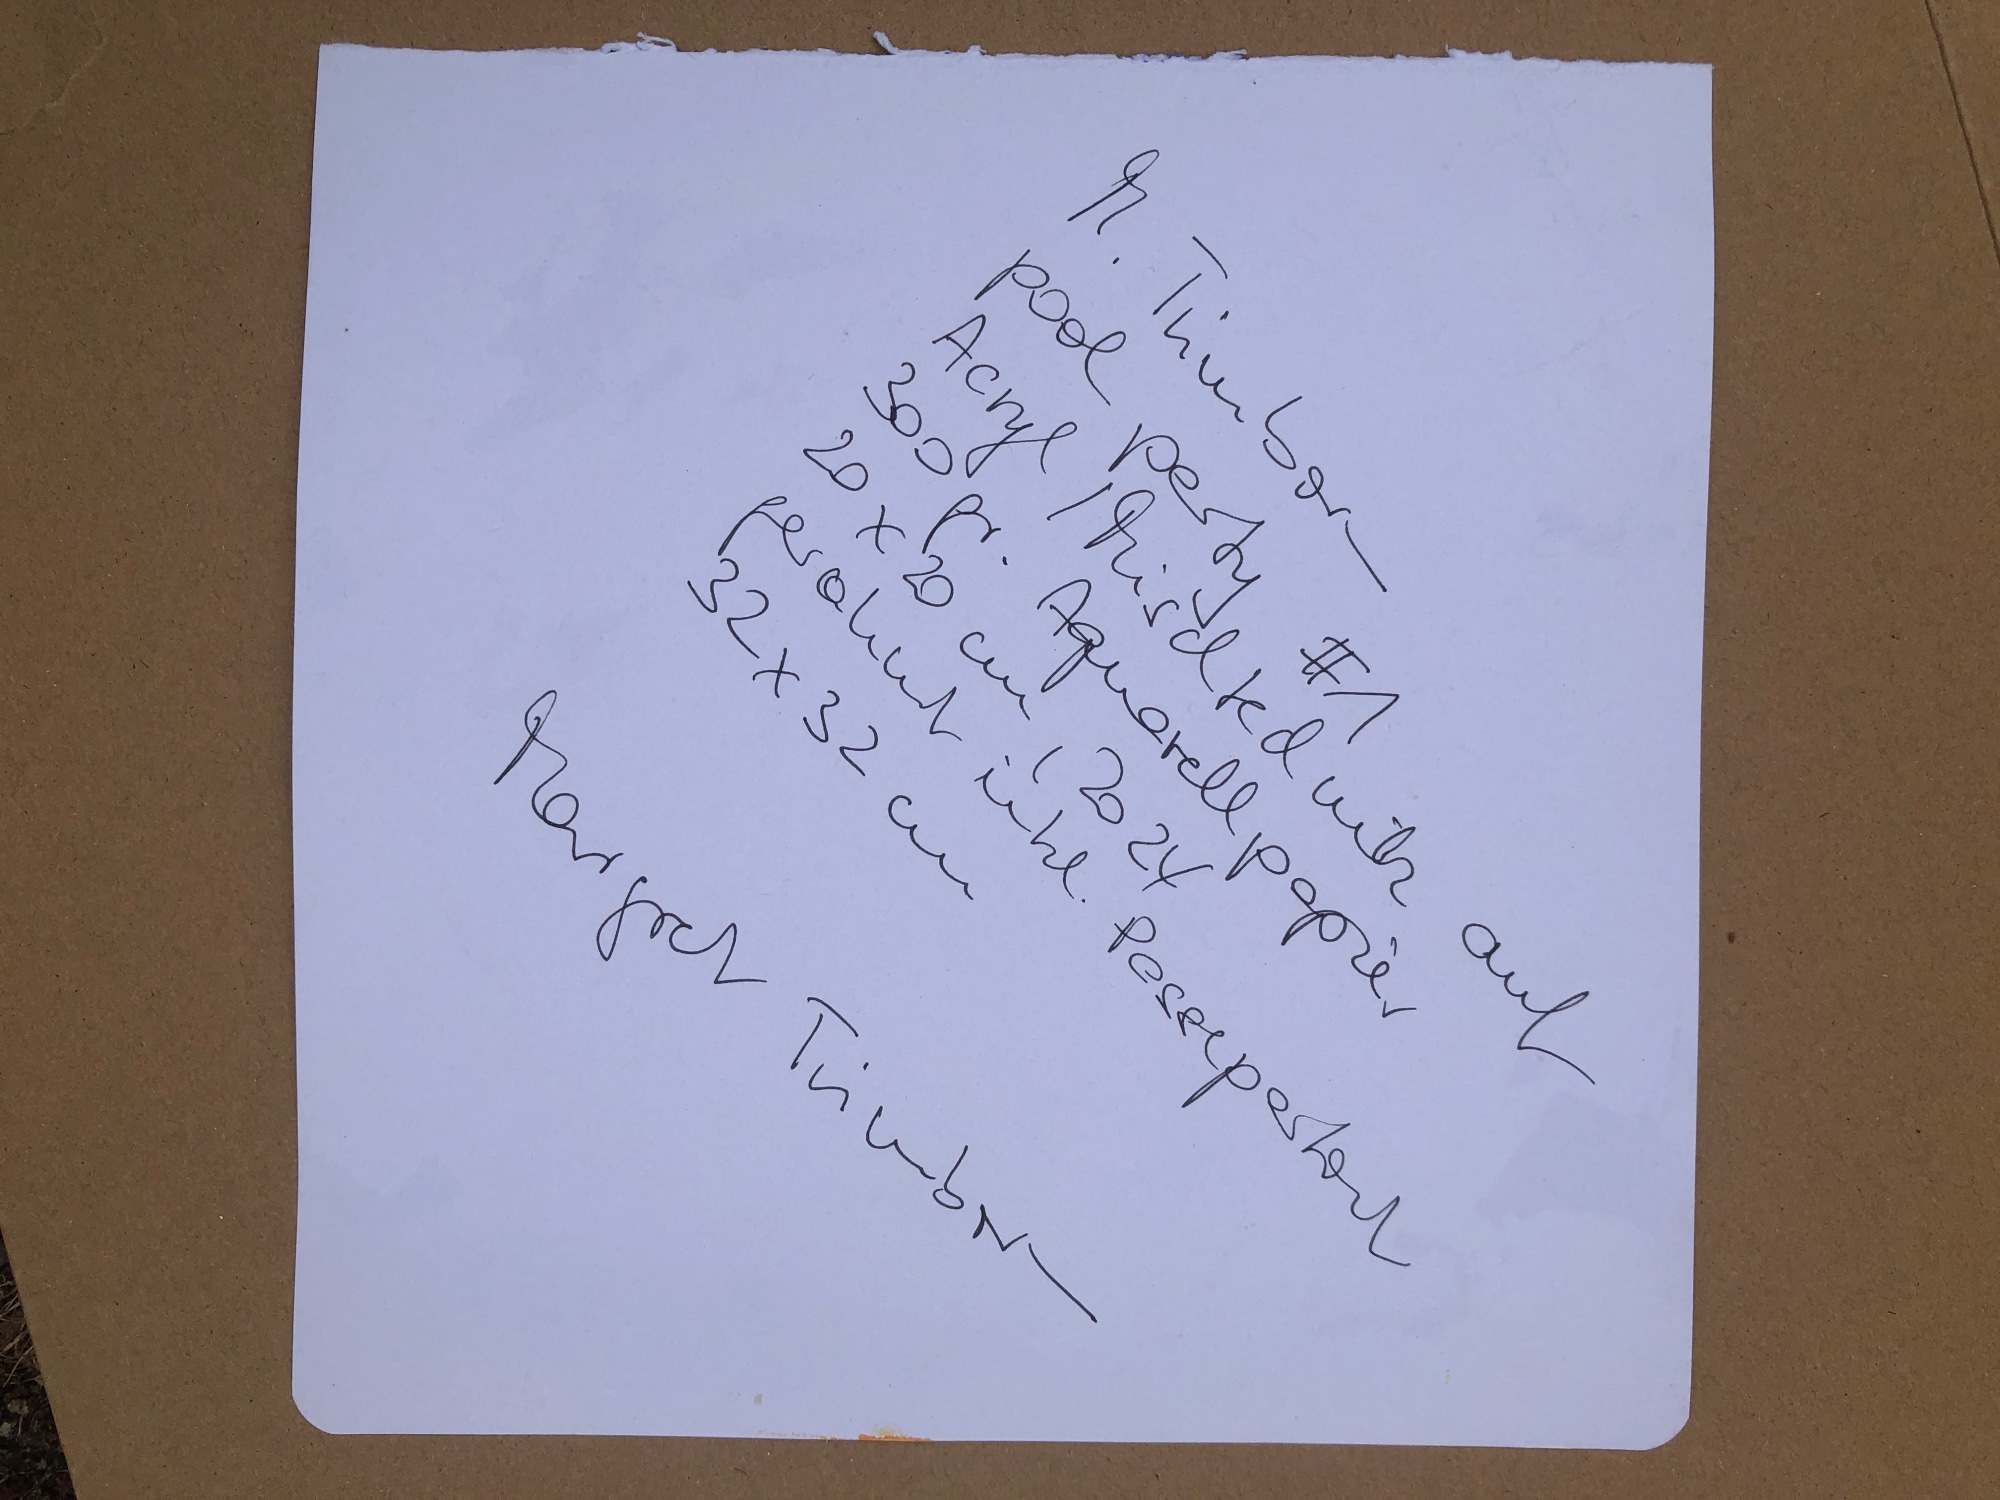 M. Timborn
pool party #1
Acryl / Mischtechnik auf
300 gr. Aquarellpapier
20 x 20 cm (2024
gerahmt inkl. Passepartout
32 x 32 cm
Margret Timborn